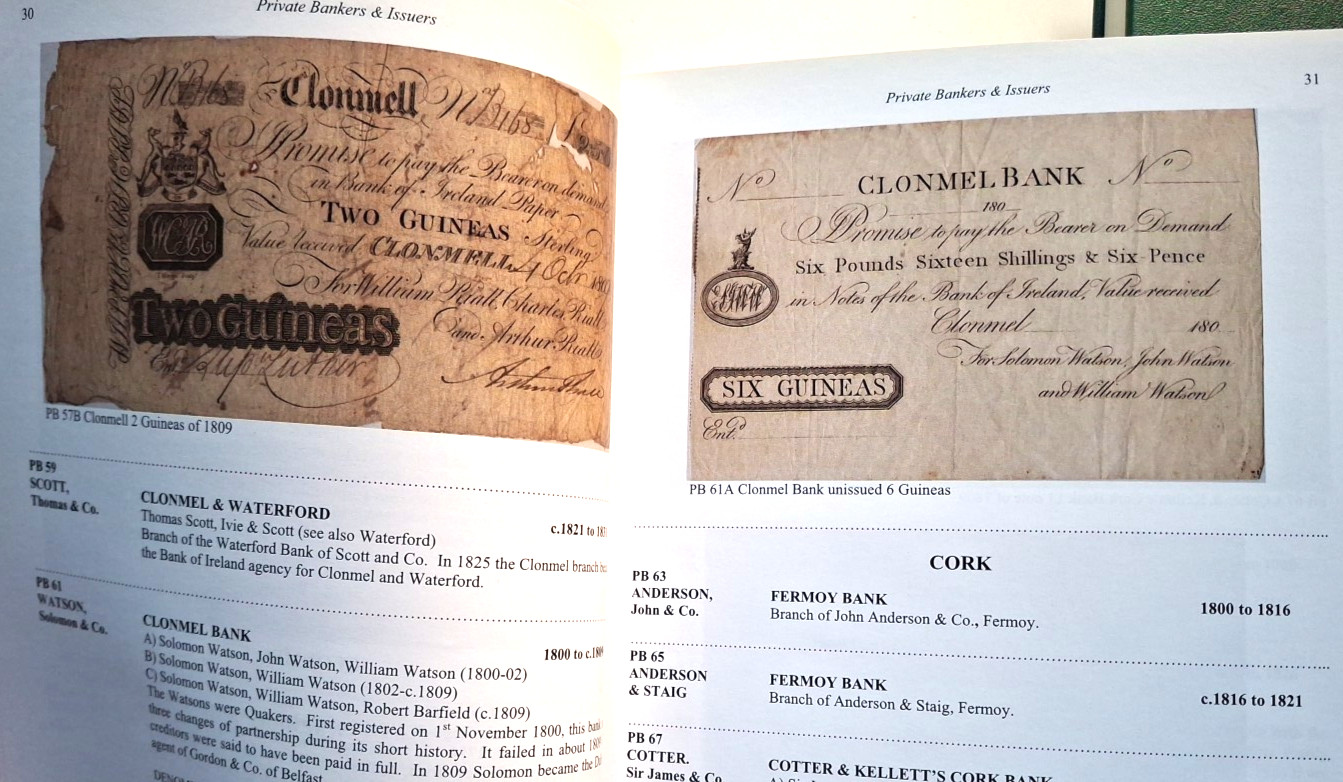 30
Private Bankers & Issuers
Clonmell
Promise to pay the Bearer on demand
in Bank of Ireland Paper
Two Guineas Sterling
Value received CLONMELL 4 Octr 180
For William Riall, Charles Riall
and Arthur Riall
Two Guineas
PB 57B Clonmell 2 Guineas of 1809
PB 59
SCOTT,
Thomas & Co.
CLONMEL & WATERFORD
c.1821 to
Thomas Scott, Ivie & Scott (see also Waterford)
Branch of the Waterford Bank of Scott and Co. In 1825 the Clonmel branch
the Bank of Ireland agency for Clonmel and Waterford.
PB 61
WATSON,
Solomon & Co.
CLONMEL BANK
1800 to c.1809
A) Solomon Watson, John Watson, William Watson (1800-02)
B) Solomon Watson, William Watson (1802-c.1809)
C) Solomon Watson, William Watson, Robert Barfield (c.1809)
The Watsons were Quakers. First registered on 1st November 1800, this bank
three changes of partnership during its short history. It failed in about 1809
creditors were said to have been paid in full. In 1809 Solomon became the
agent of Gordon & Co. of Belfast.
31
Private Bankers & Issuers
No CLONMEL BANK No
180
Promise to pay the Bearer on Demand
Six Pounds Sixteen Shillings & Six-Pence
in Notes of the Bank of Ireland, Value received
Clonmel 180
For Solomon Watson, John Watson
and William Watson
SIX GUINEAS
Entd.
PB 61A Clonmel Bank unissued 6 Guineas
CORK
PB 63
ANDERSON,
John & Co.
FERMOY BANK
1800 to 1816
Branch of John Anderson & Co., Fermoy.
PB 65
ANDERSON
& STAIG
FERMOY BANK
c.1816 to 1821
Branch of Anderson & Staig, Fermoy.
PB 67
COTTER.
Sir James & Co
COTTER & KELLETT'S CORK BANK